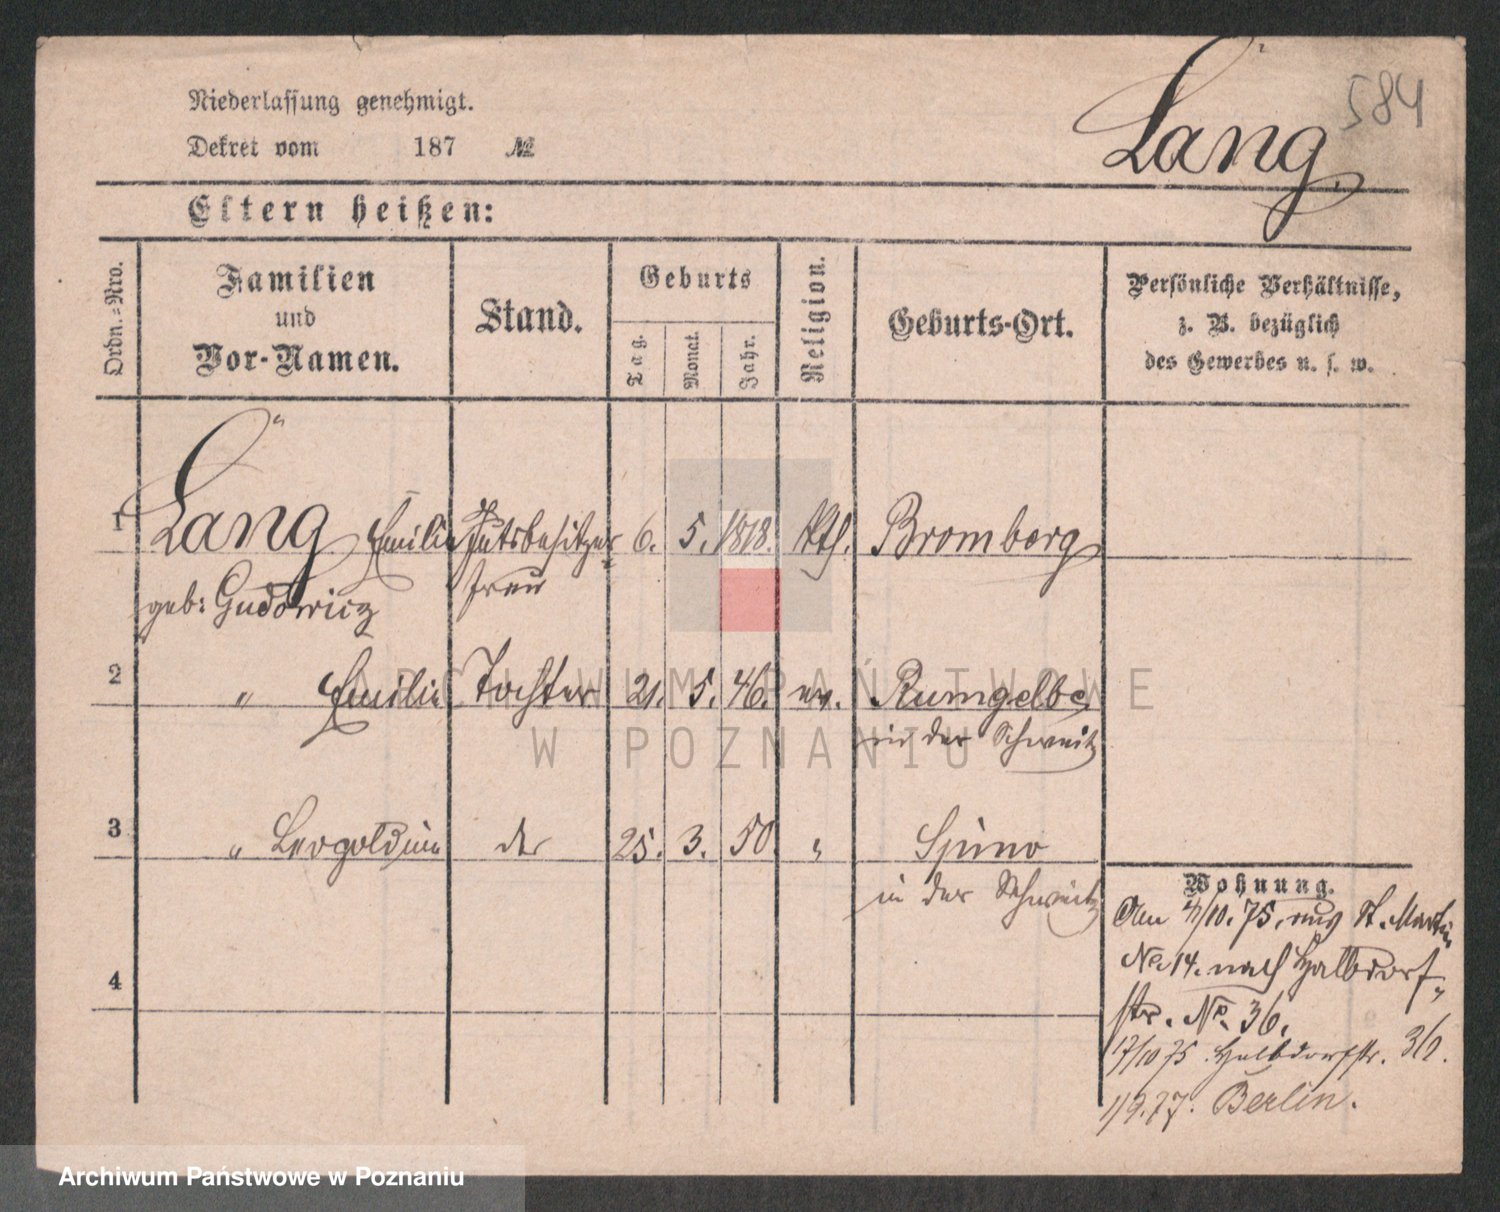 Lang.
584
Niederlassung genehmigt.
Dekret vom 187 №
Eltern heißen:
Ordn.-Nro.
Familien
und
Vor-Namen.
Stand.
Geburts
Tag.
Monat.
Jahr.
Religion.
Geburts-Ort.
Persönliche Verhältnisse,
z. B. bezüglich
des Gewerbes u. s. w.
1 Lang Emilie Gutsbesitzer 6. 5. 1818. kth. Bromberg
geb: Gudowicz frau
2 " Emilie Tochter 21. 5. 46. ev. Rumgelbe
in der Schweitz
3 " Leopoldine der 25. 3. 50. "
in der Schweitz
4
Wohnung.
Am 4/10. 75. aus St. Martin
No. 14. nach Halbdorf-
str. No. 36.
17/10 75. Halbdorfstr. 36.
1/9.77. Berlin.
ARCHIWUM PAŃSTWOWE
W POZNANIU
Archiwum Państwowe w Poznaniu